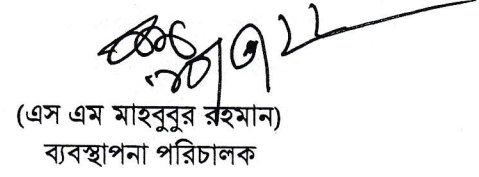 (এস এম মাহবুবুর রহমান)
ব্যবস্থাপনা পরিচালক